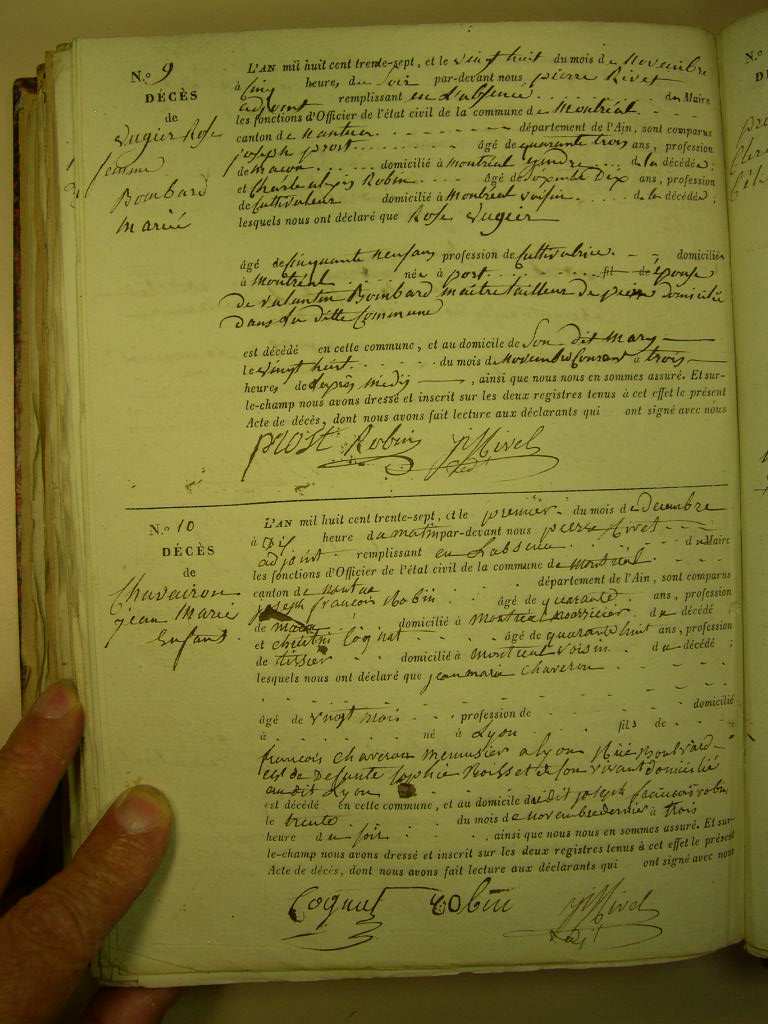 N.o 9
DÉCÈS
de
Vugier Rose
femme
Bombard
mariée
L'AN mil huit cent trente-sept, et le vingt huit du mois de Novembre
à Cinq heure, du Soir par-devant nous pierre Rivet
adjoint remplissant en l'absence du Maire
les fonctions d'Officier de l'état civil de la commune de Montréal
canton de Nantua département de l'Ain, sont comparus
joseph prost âgé de quarante trois ans, profession
de maçon domicilié à Montréal gendre de la décédée;
et Charle alexis Robin âgé de soixante Dix ans, profession
de Cultivateur domicilié à Montréal voisin de la décédée;
lesquels nous ont déclaré que Rose Vugier
âgé de Cinquante neuf ans profession de Cultivatrice domiciliée
à Montréal née à port fil de épouse
de valantin Bombard maitre tailleur de pierre domicilié
dans la ditte Commune
est décédé en cette commune, et au domicile de Son dit mary
le vingt huit du mois de Novembre Courant à trois
heure, de après midy, ainsi que nous nous en sommes assuré. Et sur-
le-champ nous avons dressé et inscrit sur les deux registres tenus à cet effet le présent
Acte de décès, dont nous avons fait lecture aux déclarants qui ont signé avec nous
prost Robin Rivet
N.o 10
DÉCÈS
de
Chavairon
jean Marie
Enfant
L'AN mil huit cent trente-sept, et le premier du mois de decembre
à Dix heure du matin par-devant nous pierre Rivet
adjoint remplissant en l'absence du Maire
les fonctions d'Officier de l'état civil de la commune de Montréal
canton de Nantua département de l'Ain, sont comparus
joseph françois Robin âgé de quarante ans, profession
de maçon domicilié à Montréal nourricier du décédé
et Cognat âgé de quarante huit ans, profession
de tissier domicilié à Montréal voisin du décédé;
lesquels nous ont déclaré que jean marie chaveron
âgé de vingt mois profession de domicilié
à né à Lyon fils de
françois chaveron menuisier a lyon
et de Defunte Sophie de son vivant domicilié
audit Lyon
est décédé en cette commune, et au domicile du dit joseph françois robin
le trente du mois de novembre dernier à trois
heure du soir, ainsi que nous nous en sommes assuré. Et sur-
le-champ nous avons dressé et inscrit sur les deux registres tenus à cet effet le présent
Acte de décès, dont nous avons fait lecture aux déclarants qui ont signé avec nous
Cognat Robin Rivet